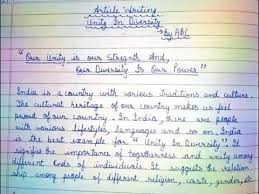 Article Writing
Unity In Diversity
→ By ABC
"Our Unity is our Stregnth And,
Our Diversity Is Our Power"
India is a country with various traditions and culture.
The cultural heritage of our country makes us feel
proud of our country. In India, there are people
with various lifestyles, languages and so on. India
is the best example for "Unity In Diversity". It
signifies the importance of togetherness and unity among
different ends of individuals. It suggests the relation
ship among people of different religion, caste, gender, etc